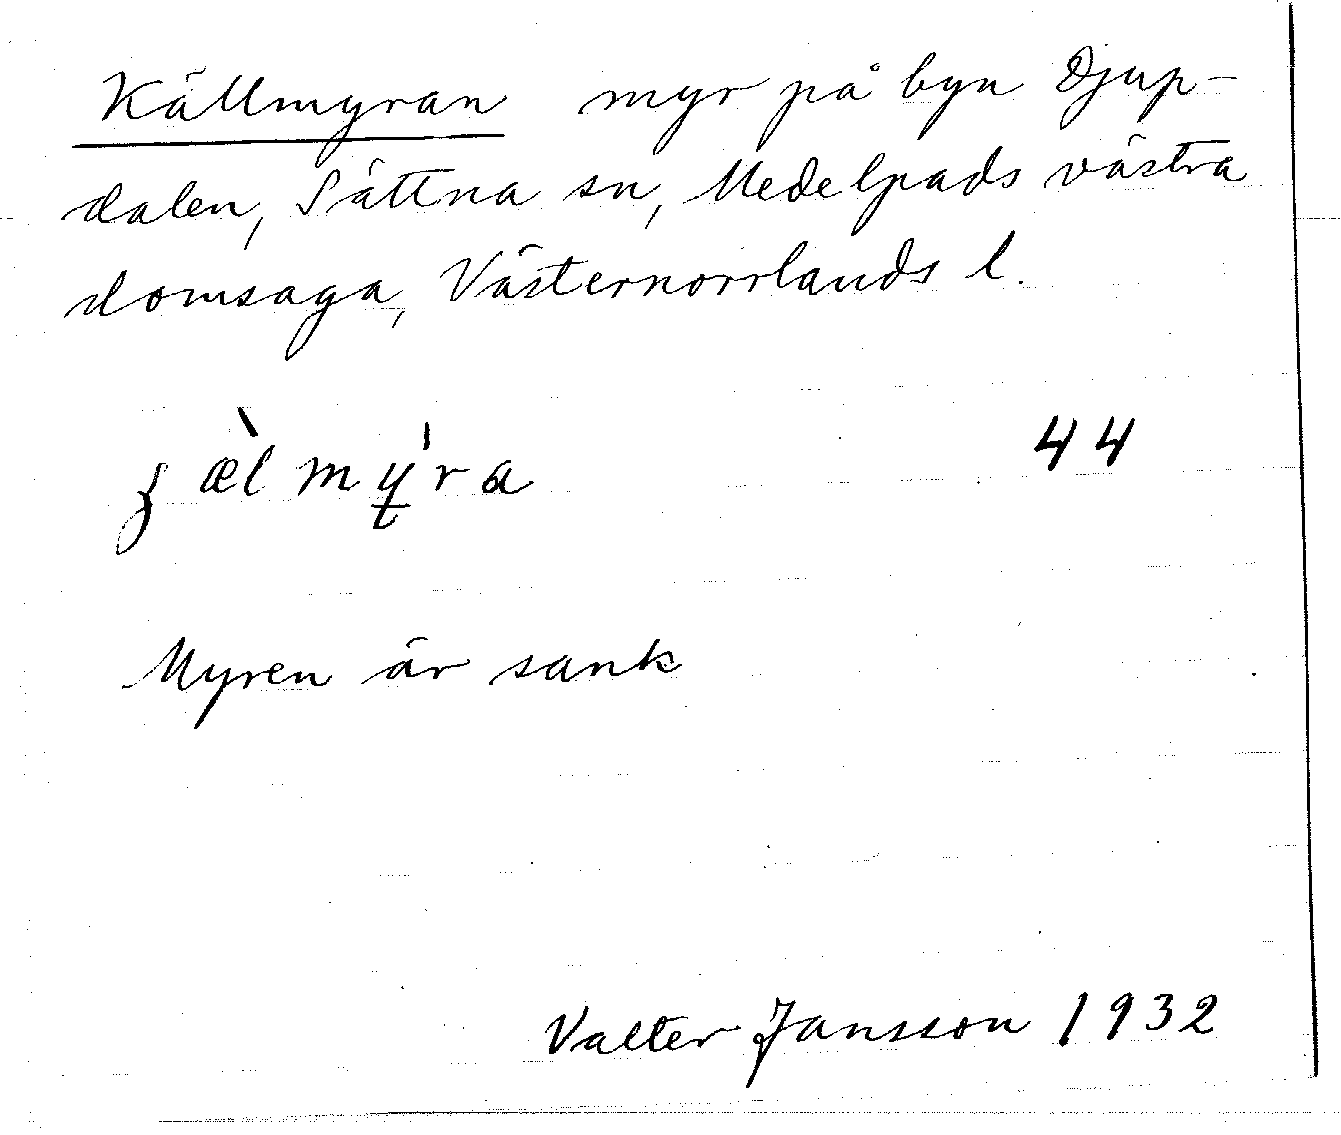 Källmyran myr på byn Djup-
dalen, Sättna sn, Medelpads västra
domsaga, Västernorrlands l.
ʒæ̀lmy̱̍ra 44
Myren är sank
Valter Jansson 1932